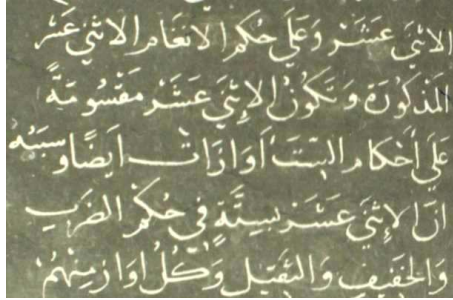 الاثنَى عَشَر وَعَلى حُكم الانغَام الاثنى عَشر
المَذكورَة وَتكونُ الاِثنَى عَشَر مَقسُومَةً
عَلى أحكام الستَ أوَازَات ايضًا وسَببُه
انّ الاِثنَى عَشَر بستَّةٍ فى حُكم الضَربِ
وَالخفيفِ وَالثقيل وَكُلُ اوَاز مِنهُم